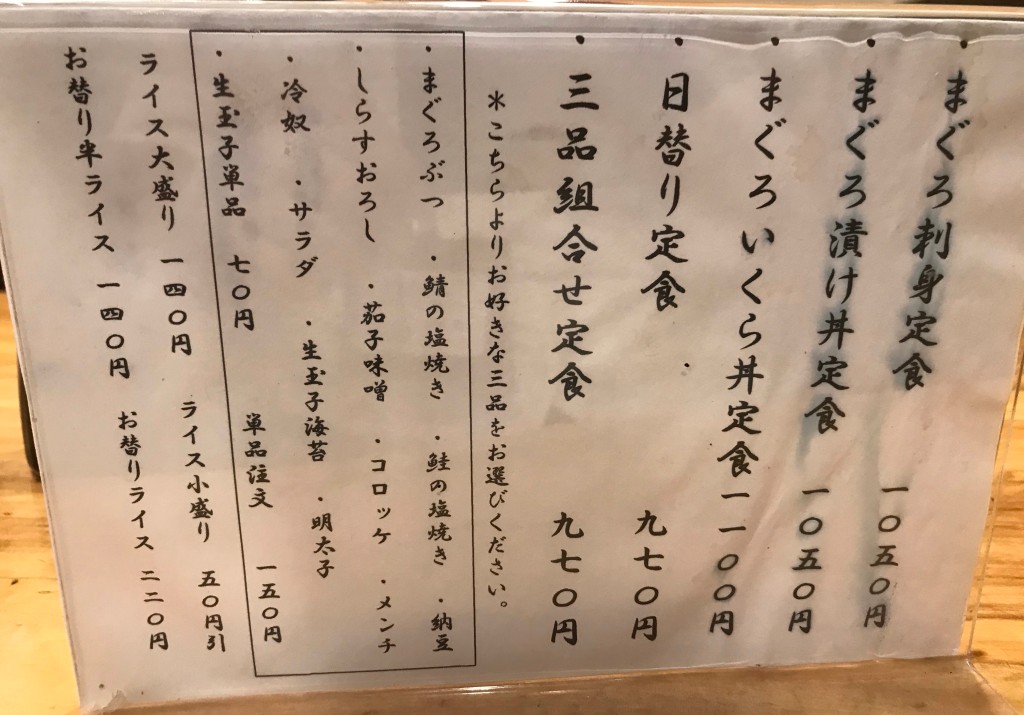 ・まぐろ刺身定食 一〇五〇円
・まぐろ漬け丼定食 一〇五〇円
・まぐろいくら丼定食 一一〇〇円
・日替り定食 九七〇円
・三品組合せ定食 九七〇円
＊こちらよりお好きな三品をお選びください。
・まぐろぶつ ・鯖の塩焼き ・鮭の塩焼き ・納豆
・しらすおろし ・茄子味噌 ・コロッケ ・メンチ
・冷奴 ・サラダ ・生玉子海苔 ・明太子
・生玉子単品 七〇円 単品注文 一五〇円
ライス大盛り 一四〇円 ライス小盛り 五〇円引
お替り半ライス 一四〇円 お替りライス 二二〇円